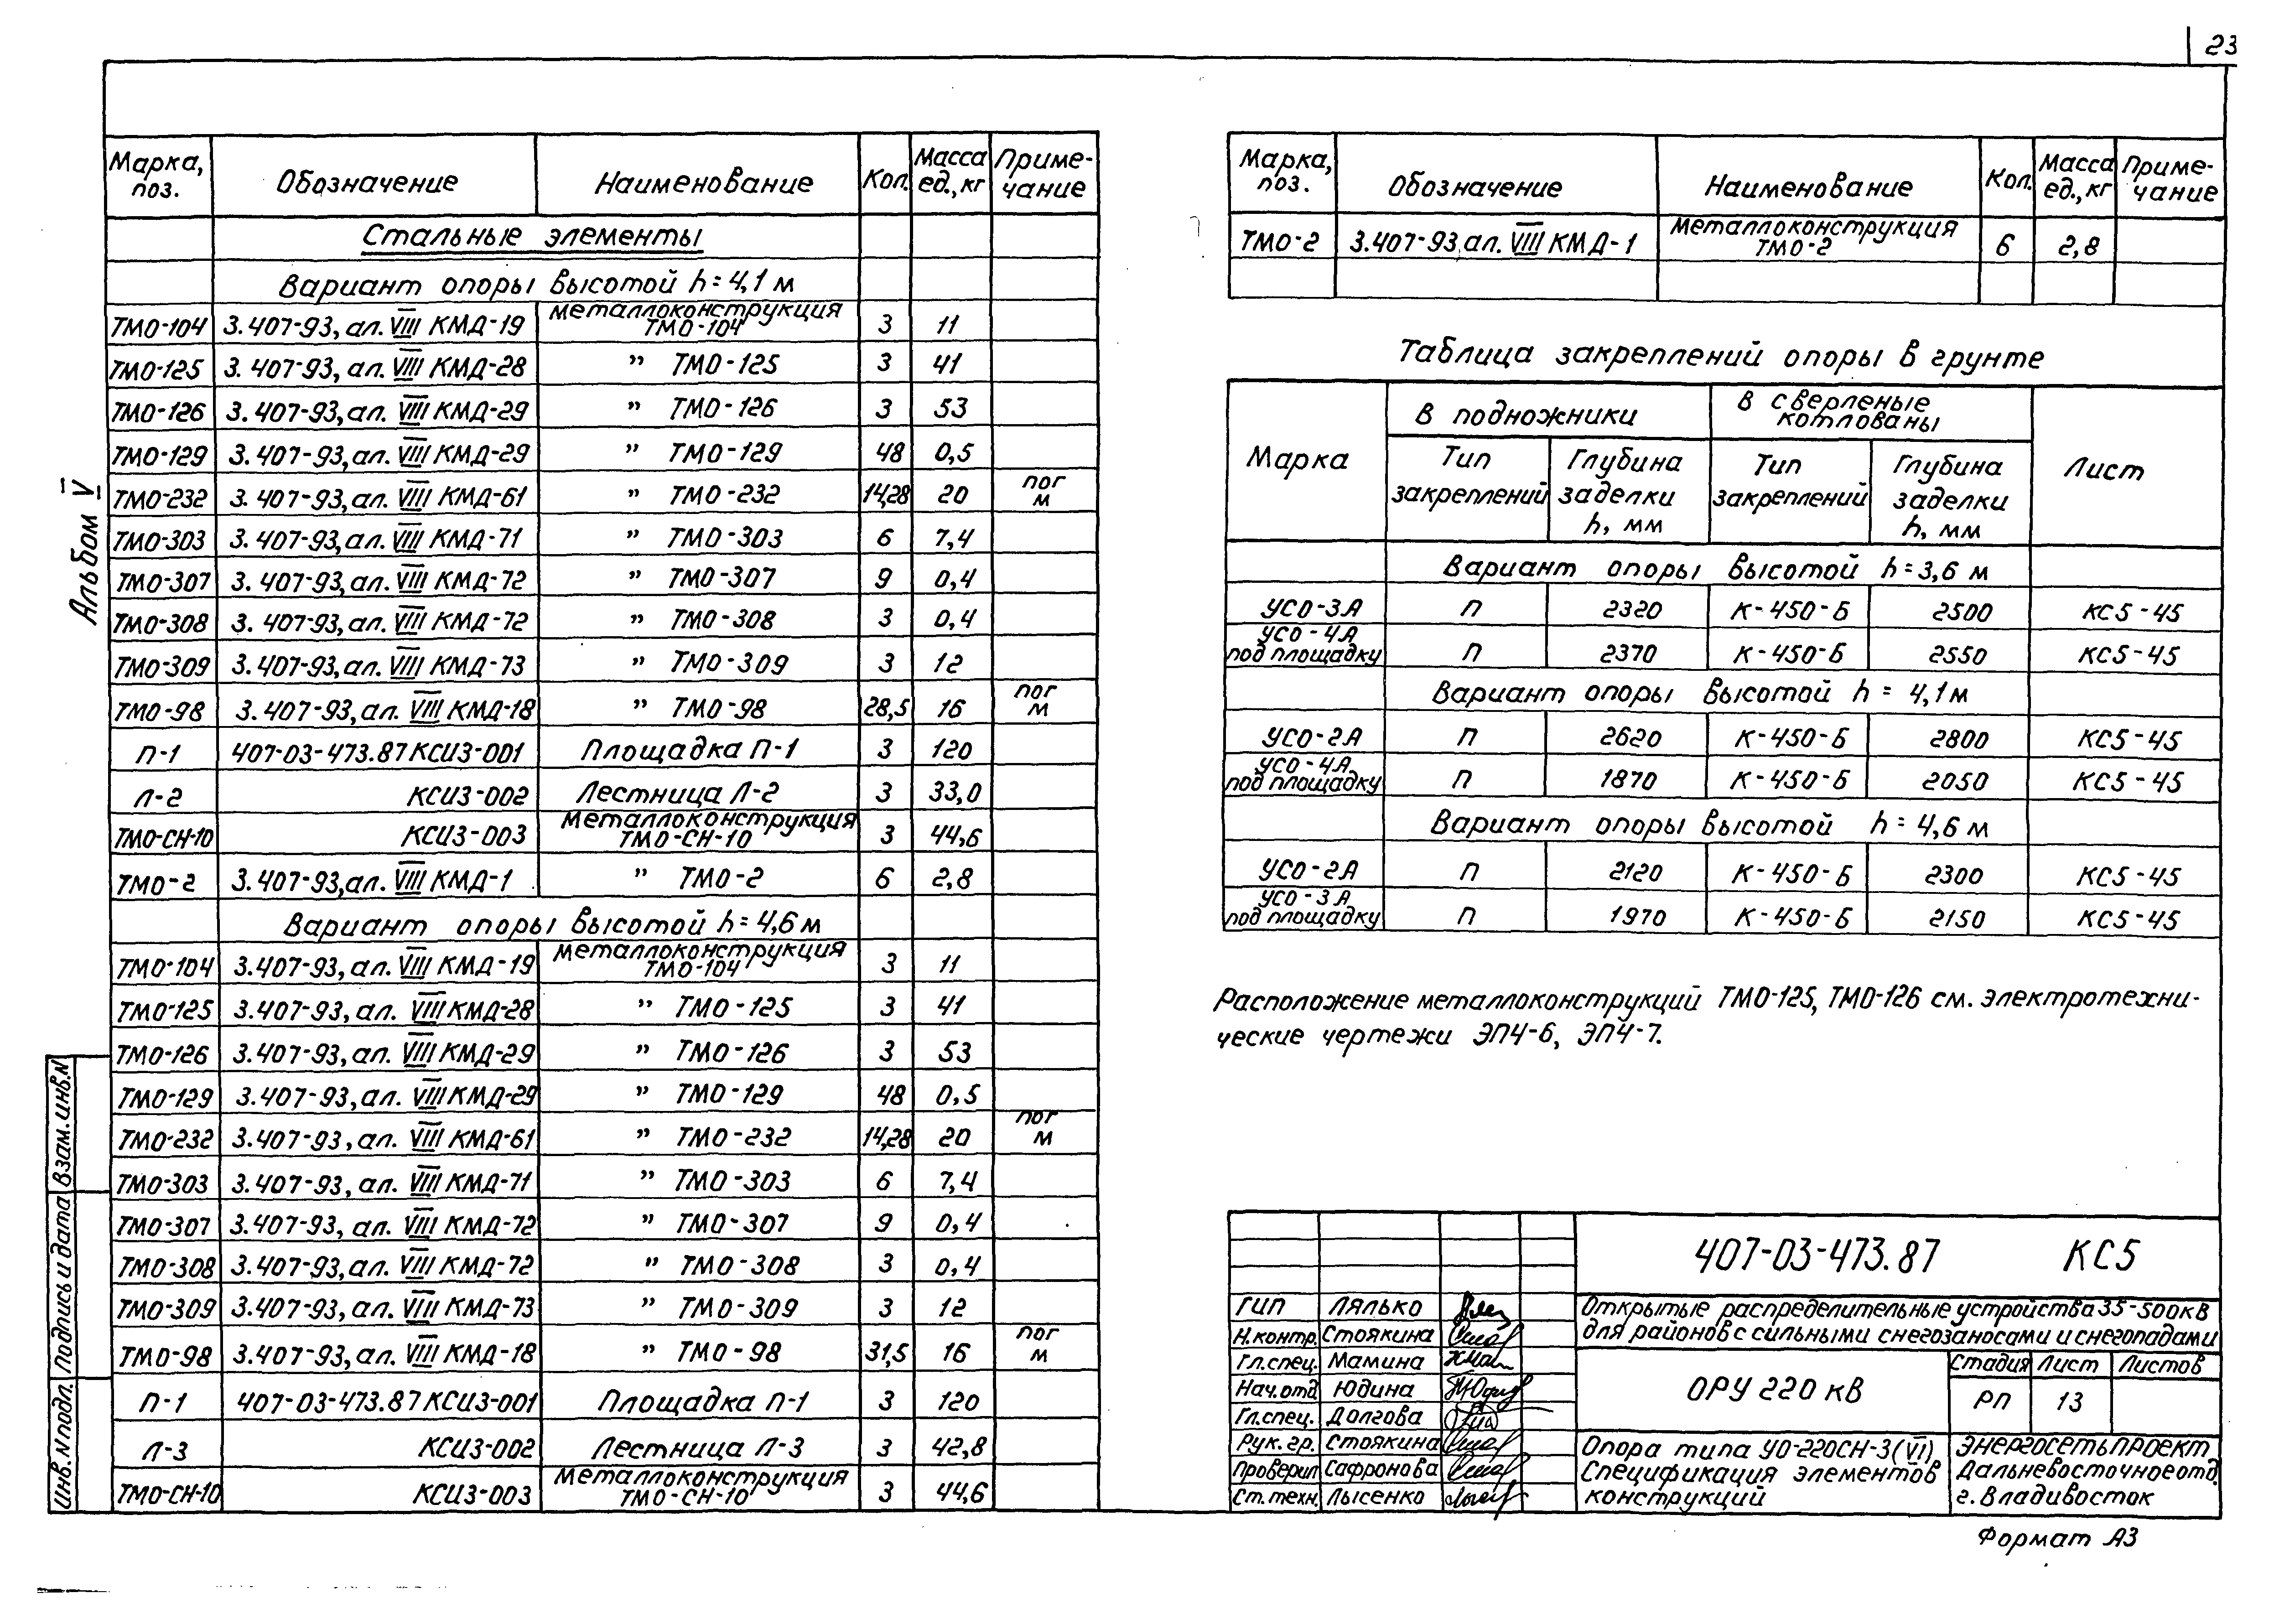 23
Альбом V
Марка, поз. Обозначение Наименование Кол. Масса ед., кг Примечание
Стальные элементы
Вариант опоры высотой h = 4,1 м
ТМО-104 3.407-93, ал. VIII КМД-19 Металлоконструкция ТМО-104 3 11
ТМО-125 3.407-93, ал. VIII КМД-28 " ТМО-125 3 41
ТМО-126 3.407-93, ал. VIII КМД-29 " ТМО-126 3 53
ТМО-129 3.407-93, ал. VIII КМД-29 " ТМО-129 48 0,5
ТМО-232 3.407-93, ал. VIII КМД-61 " ТМО-232 14,28 20 пог м
ТМО-303 3.407-93, ал. VIII КМД-71 " ТМО-303 6 7,4
ТМО-307 3.407-93, ал. VIII КМД-72 " ТМО-307 9 0,4
ТМО-308 3.407-93, ал. VIII КМД-72 " ТМО-308 3 0,4
ТМО-309 3.407-93, ал. VIII КМД-73 " ТМО-309 3 12
ТМО-98 3.407-93, ал. VIII КМД-18 " ТМО-98 28,5 16 пог м
П-1 407-03-473.87 КСИЗ-001 Площадка П-1 3 120
Л-2 КСИЗ-002 Лестница Л-2 3 33,0
ТМО-СН-10 КСИЗ-003 Металлоконструкция ТМО-СН-10 3 44,6
ТМО-2 3.407-93, ал. VIII КМД-1 " ТМО-2 6 2,8
Вариант опоры высотой h = 4,6 м
ТМО-104 3.407-93, ал. VIII КМД-19 Металлоконструкция ТМО-104 3 11
ТМО-125 3.407-93, ал. VIII КМД-28 " ТМО-125 3 41
ТМО-126 3.407-93, ал. VIII КМД-29 " ТМО-126 3 53
ТМО-129 3.407-93, ал. VIII КМД-29 " ТМО-129 48 0,5
ТМО-232 3.407-93, ал. VIII КМД-61 " ТМО-232 14,28 20 пог м
ТМО-303 3.407-93, ал. VIII КМД-71 " ТМО-303 6 7,4
ТМО-307 3.407-93, ал. VIII КМД-72 " ТМО-307 9 0,4
ТМО-308 3.407-93, ал. VIII КМД-72 " ТМО-308 3 0,4
ТМО-309 3.407-93, ал. VIII КМД-73 " ТМО-309 3 12
ТМО-98 3.407-93, ал. VIII КМД-18 " ТМО-98 31,5 16 пог м
П-1 407-03-473.87 КСИЗ-001 Площадка П-1 3 120
Л-3 КСИЗ-002 Лестница Л-3 3 42,8
ТМО-СН-10 КСИЗ-003 Металлоконструкция ТМО-СН-10 3 44,6
Взам. инв. N
Подпись и дата
Инв. N подл.
Марка, поз. Обозначение Наименование Кол. Масса ед., кг Примечание
ТМО-2 3.407-93, ал. VIII КМД-1 Металлоконструкция ТМО-2 6 2,8
Таблица закреплений опоры в грунте
Марка В подножники В сверленые котлованы Лист
Тип закреплений Глубина заделки h, мм Тип закреплений Глубина заделки h, мм
Вариант опоры высотой h = 3,6 м
УСО-3А П 2320 К-450-Б 2500 КС5-45
УСО-4А под площадку П 2370 К-450-Б 2550 КС5-45
Вариант опоры высотой h = 4,1 м
УСО-2А П 2620 К-450-Б 2800 КС5-45
УСО-4А под площадку П 1870 К-450-Б 2050 КС5-45
Вариант опоры высотой h = 4,6 м
УСО-2А П 2120 К-450-Б 2300 КС5-45
УСО-3А под площадку П 1970 К-450-Б 2150 КС5-45
Расположение металлоконструкций ТМО-125, ТМО-126 см. электротехни-
ческие чертежи ЭП4-6, ЭП4-7.
407-03-473.87 КС5
ГИП Лялько
Н.контр. Стоякина
Гл.спец. Мамина
Нач.отд Юдина
Гл.спец. Долгова
Рук. гр. Стоякина
Проверил Сафронова
Ст. техн. Лысенко
Открытые распределительные устройства 35-500 кВ
для районов с сильными снегозаносами и снегопадами
ОРУ 220 кВ
Стадия Лист Листов
РП 13
Опора типа УО-220СН-3(VI)
Спецификация элементов
конструкций
Энергосетьпроект
Дальневосточное отд.
г. Владивосток
Формат А3